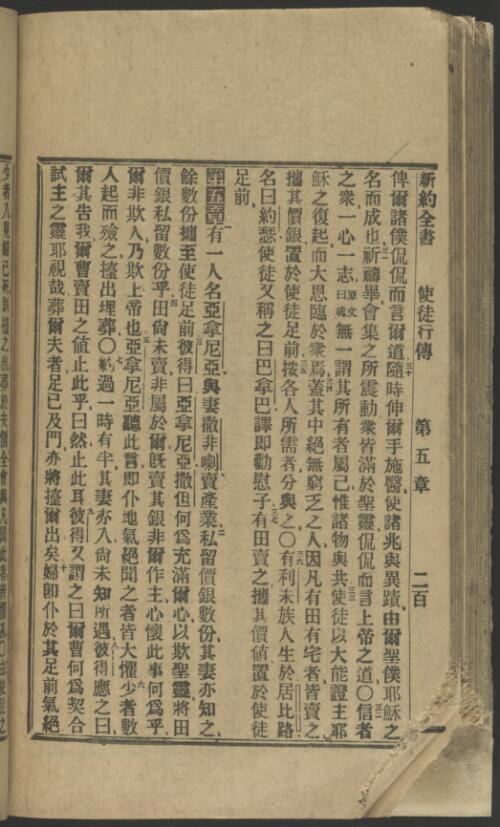 新約全書 使徒行傳 第五章 二百
俾爾諸僕侃侃而言爾道三十隨時伸爾手施醫使諸兆與異蹟由爾聖僕耶穌之
名而成也三一祈禱畢會集之所震動衆皆滿於聖靈侃侃而言上帝之道〇三二信者
之衆一心一志原文曰魂無一謂其所有者屬己惟諸物與共三三使徒以大能證主耶
穌之復起而大恩臨於衆焉三四蓋其中絕無窮乏之人因凡有田有宅者皆賣之
攜其價銀置於使徒足前三五按各人所需者分與之〇三六有利未族人生於居比路
名曰約瑟使徒又稱之曰巴拿巴譯即勸慰子三七有田賣之攜其價値置於使徒
足前
第五章一有一人名亞拿尼亞與妻撒非喇賣產業二私留價銀數份其妻亦知之
餘數份攜至使徒足前三彼得曰亞拿尼亞撒但何爲充滿爾心以欺聖靈將田
價銀私留數份乎四田尙未賣非屬於爾旣賣其銀非爾作主心懷此事何爲乎
爾非欺人乃欺上帝也五亞拿尼亞聽此言即仆地氣絕聞之者皆大懼六少者數
人起而殮之擡出埋葬〇七約過一時有半其妻亦入尙未知所遇八彼得應之曰
爾其告我爾曹賣田之値止此乎曰然止此耳九彼得又謂之曰爾曹何爲契合
試主之靈耶視哉葬爾夫者足已及門亦將擡爾出矣十婦卽仆於其足前氣絕
少者入見婦已死